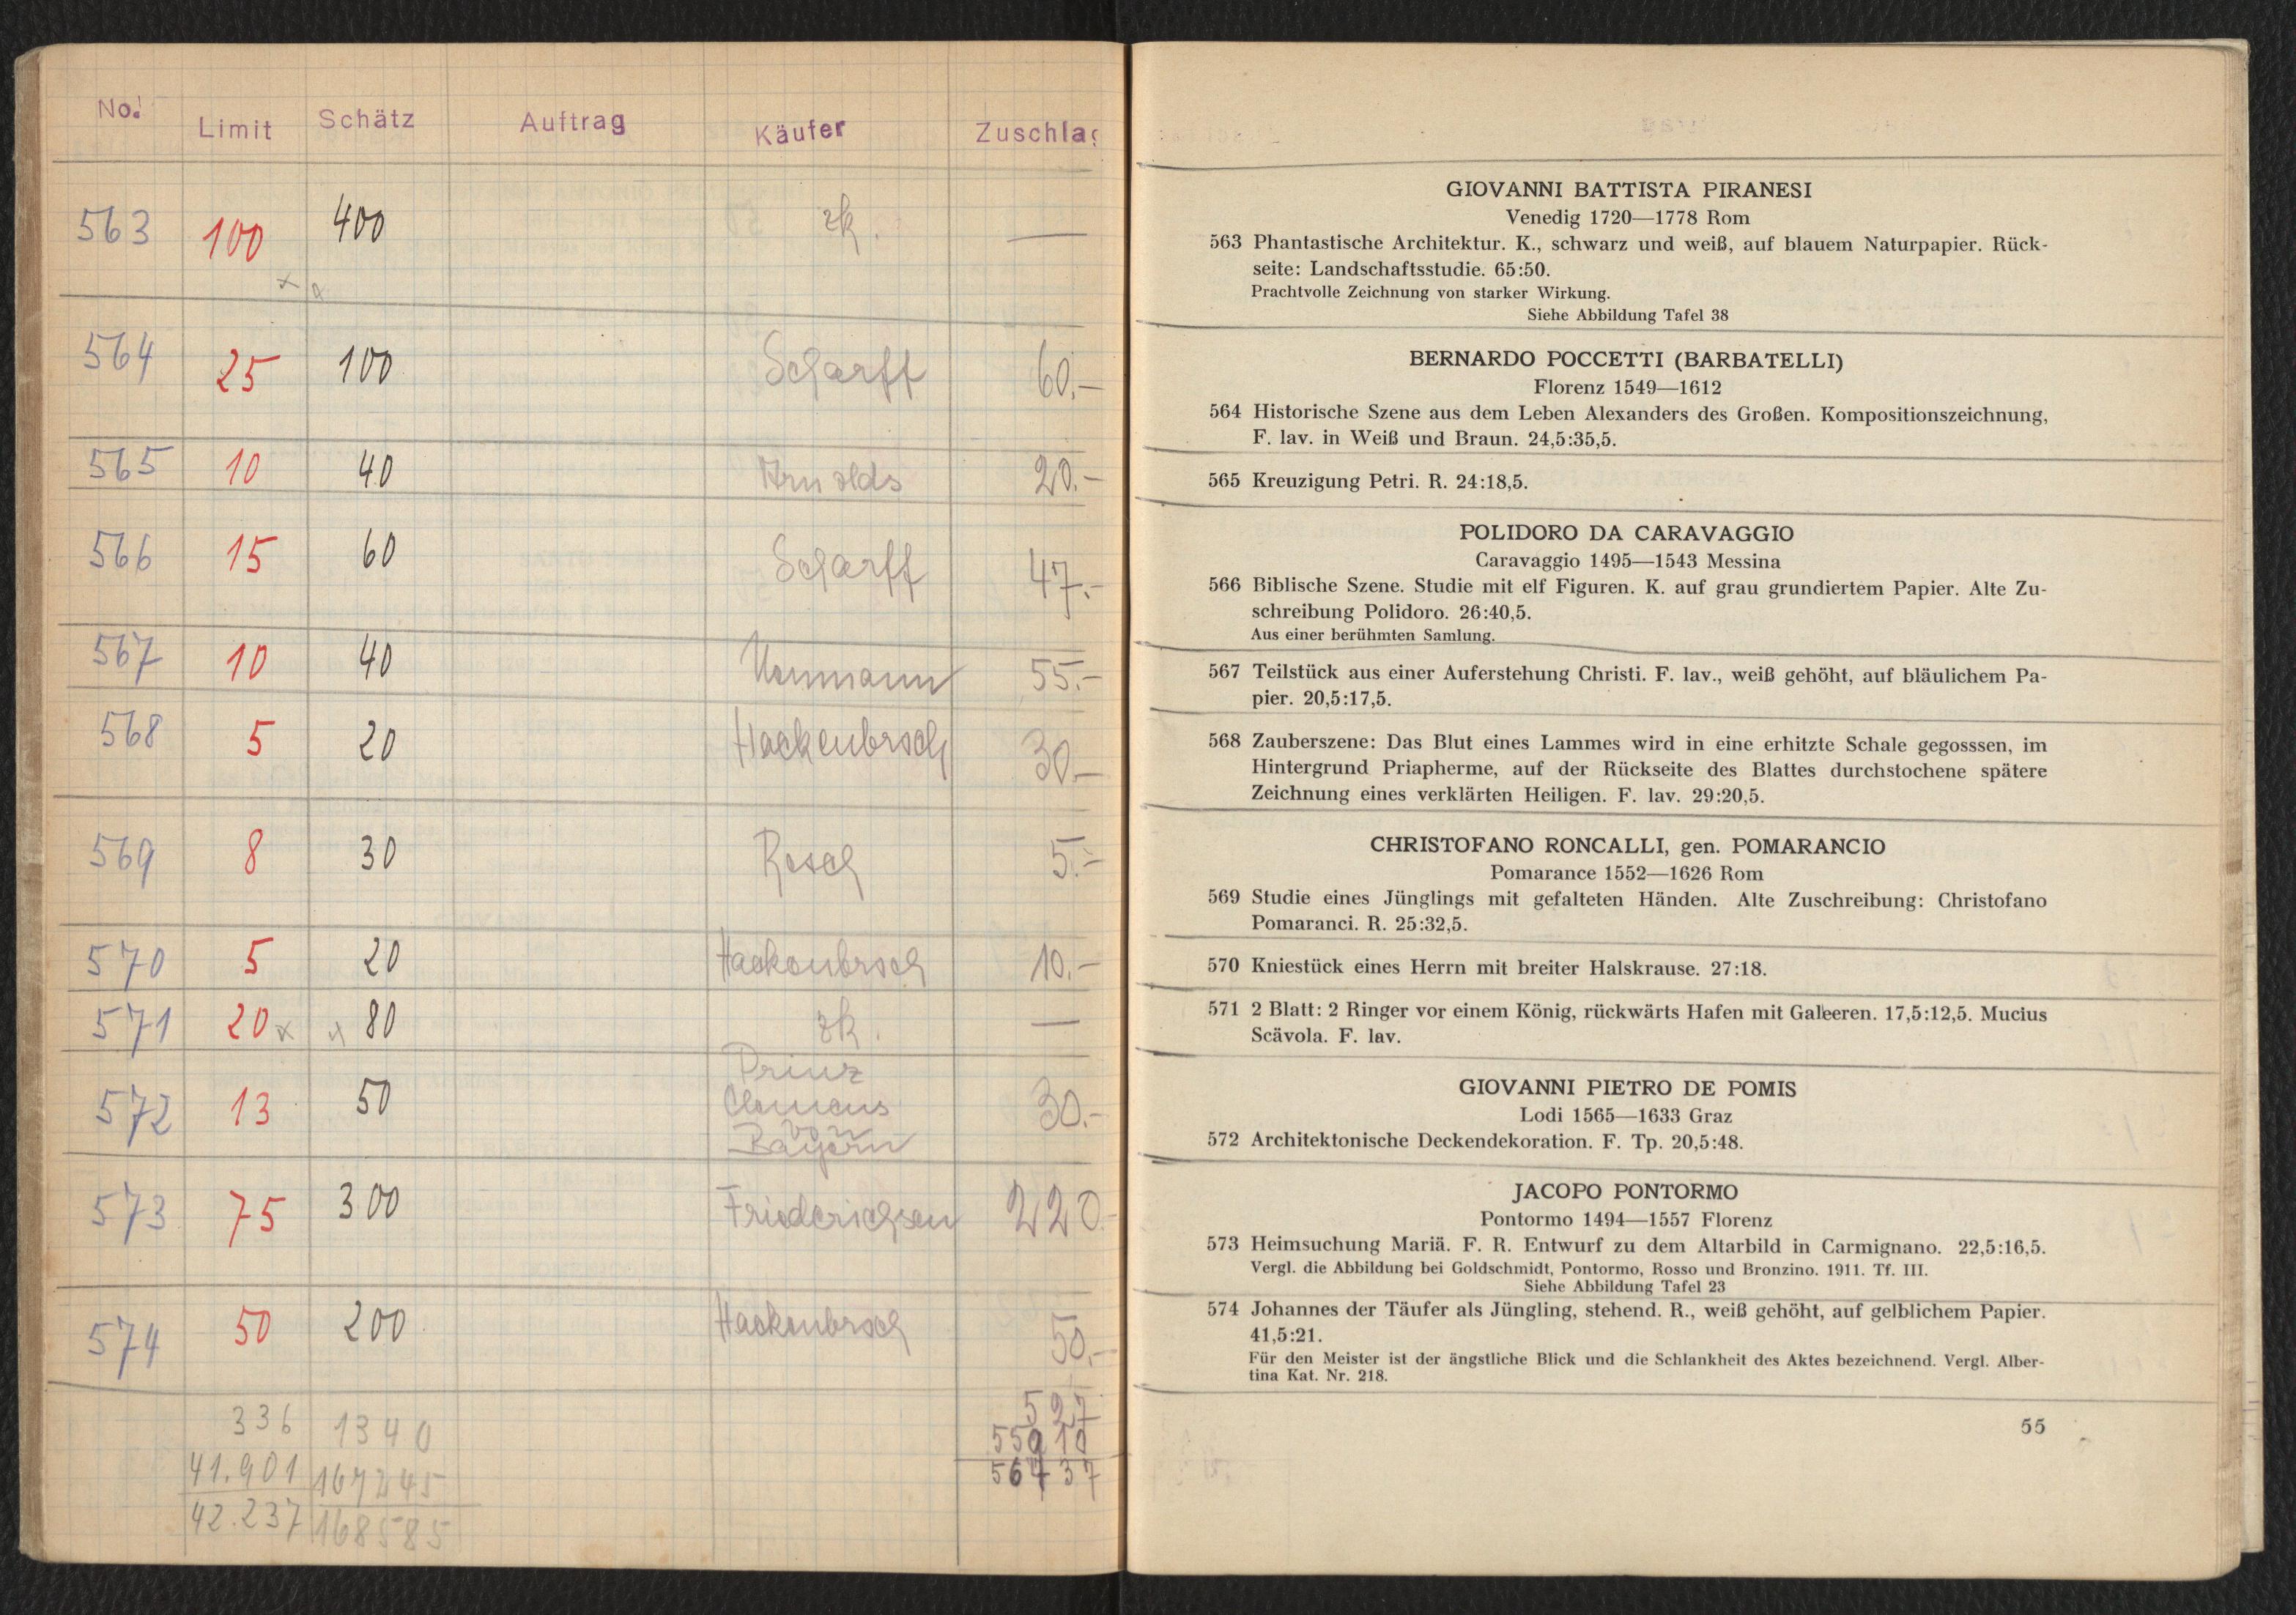 No. Limit Schätz Auftrag Käufer Zuschlag
563 100 400 zk. —
564 25 100 Scharff 60.-
565 10 40 Arnolds 20.-
566 15 60 Scharff 47.-
567 10 40 55.-
568 5 20 Hackenbroch 30.-
569 8 30 Rosch 5.-
570 5 20 Hackenbroch 10.-
571 20 x x 80 zk. —
Prinz
572 13 50 Clemens 30.-
von
Bayern
573 75 300 Friederichsen 220.-
574 50 200 Hackenbroch 50.-
336 1340 527
41.901 167245 55910
42.237 168585 56437
GIOVANNI BATTISTA PIRANESI
Venedig 1720—1778 Rom
563 Phantastische Architektur. K., schwarz und weiß, auf blauem Naturpapier. Rück-
seite: Landschaftsstudie. 65:50.
Prachtvolle Zeichnung von starker Wirkung.
Siehe Abbildung Tafel 38
BERNARDO POCCETTI (BARBATELLI)
Florenz 1549—1612
564 Historische Szene aus dem Leben Alexanders des Großen. Kompositionszeichnung,
F. lav. in Weiß und Braun. 24,5:35,5.
565 Kreuzigung Petri. R. 24:18,5.
POLIDORO DA CARAVAGGIO
Caravaggio 1495—1543 Messina
566 Biblische Szene. Studie mit elf Figuren. K. auf grau grundiertem Papier. Alte Zu-
schreibung Polidoro. 26:40,5.
Aus einer berühmten Samlung.
567 Teilstück aus einer Auferstehung Christi. F. lav., weiß gehöht, auf bläulichem Pa-
pier. 20,5:17,5.
568 Zauberszene: Das Blut eines Lammes wird in eine erhitzte Schale gegosssen, im
Hintergrund Priapherme, auf der Rückseite des Blattes durchstochene spätere
Zeichnung eines verklärten Heiligen. F. lav. 29:20,5.
CHRISTOFANO RONCALLI, gen. POMARANCIO
Pomarance 1552—1626 Rom
569 Studie eines Jünglings mit gefalteten Händen. Alte Zuschreibung: Christofano
Pomaranci. R. 25:32,5.
570 Kniestück eines Herrn mit breiter Halskrause. 27:18.
571 2 Blatt: 2 Ringer vor einem König, rückwärts Hafen mit Galeeren. 17,5:12,5. Mucius
Scävola. F. lav.
GIOVANNI PIETRO DE POMIS
Lodi 1565—1633 Graz
572 Architektonische Deckendekoration. F. Tp. 20,5:48.
JACOPO PONTORMO
Pontormo 1494—1557 Florenz
573 Heimsuchung Mariä. F. R. Entwurf zu dem Altarbild in Carmignano. 22,5:16,5.
Vergl. die Abbildung bei Goldschmidt, Pontormo, Rosso und Bronzino. 1911. Tf. III.
Siehe Abbildung Tafel 23
574 Johannes der Täufer als Jüngling, stehend. R., weiß gehöht, auf gelblichem Papier.
41,5:21.
Für den Meister ist der ängstliche Blick und die Schlankheit des Aktes bezeichnend. Vergl. Alber-
tina Kat. Nr. 218.
55